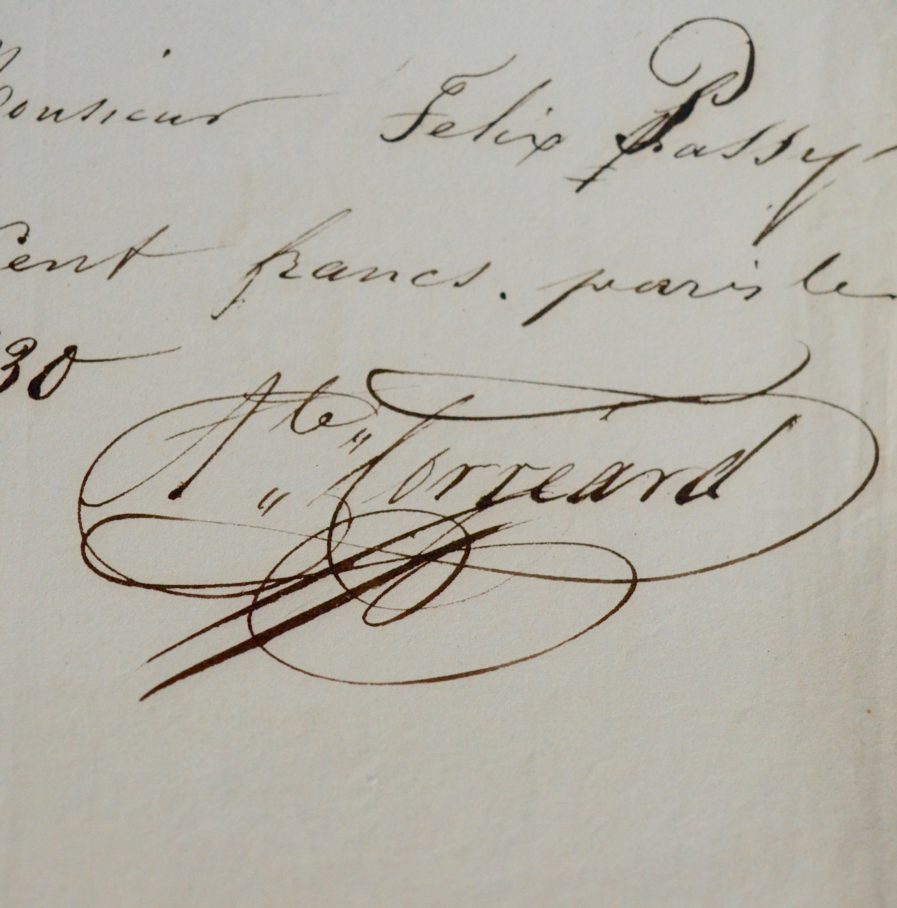 Monsieur Felix Passy
Cent francs. paris le
30
Ate „ Correard